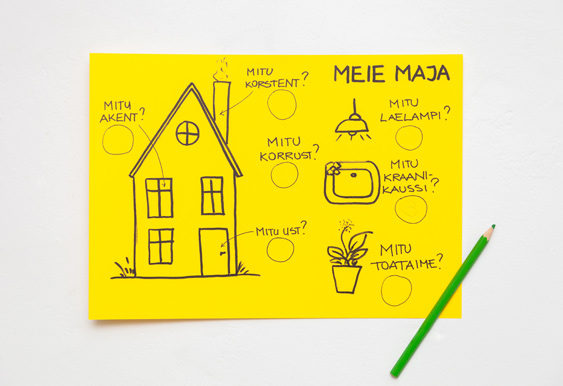 MEIE MAJA
MITU
AKENT?
MITU
KORSTENT?
MITU
KORRUST?
MITU UST?
MITU
LAELAMPI?
MITU
KRAANI-
KAUSSI?
MITU
TOATAIME?